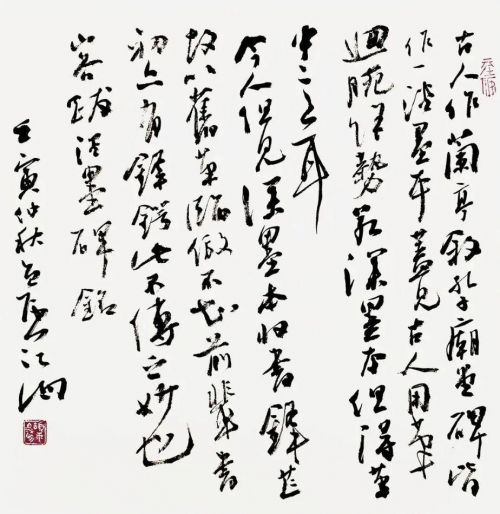 古人作蘭亭叙孔子廟堂碑皆
作一淡墨本蓋見古人用筆
迴腕餘勢若深墨本但得筆
中意耳
今人但見深墨本收書鋒芒
故以舊筆臨倣不知前輩書
初亦有鋒鍔此不傳之妙也
山谷跋淡墨碑銘
壬寅仲秋